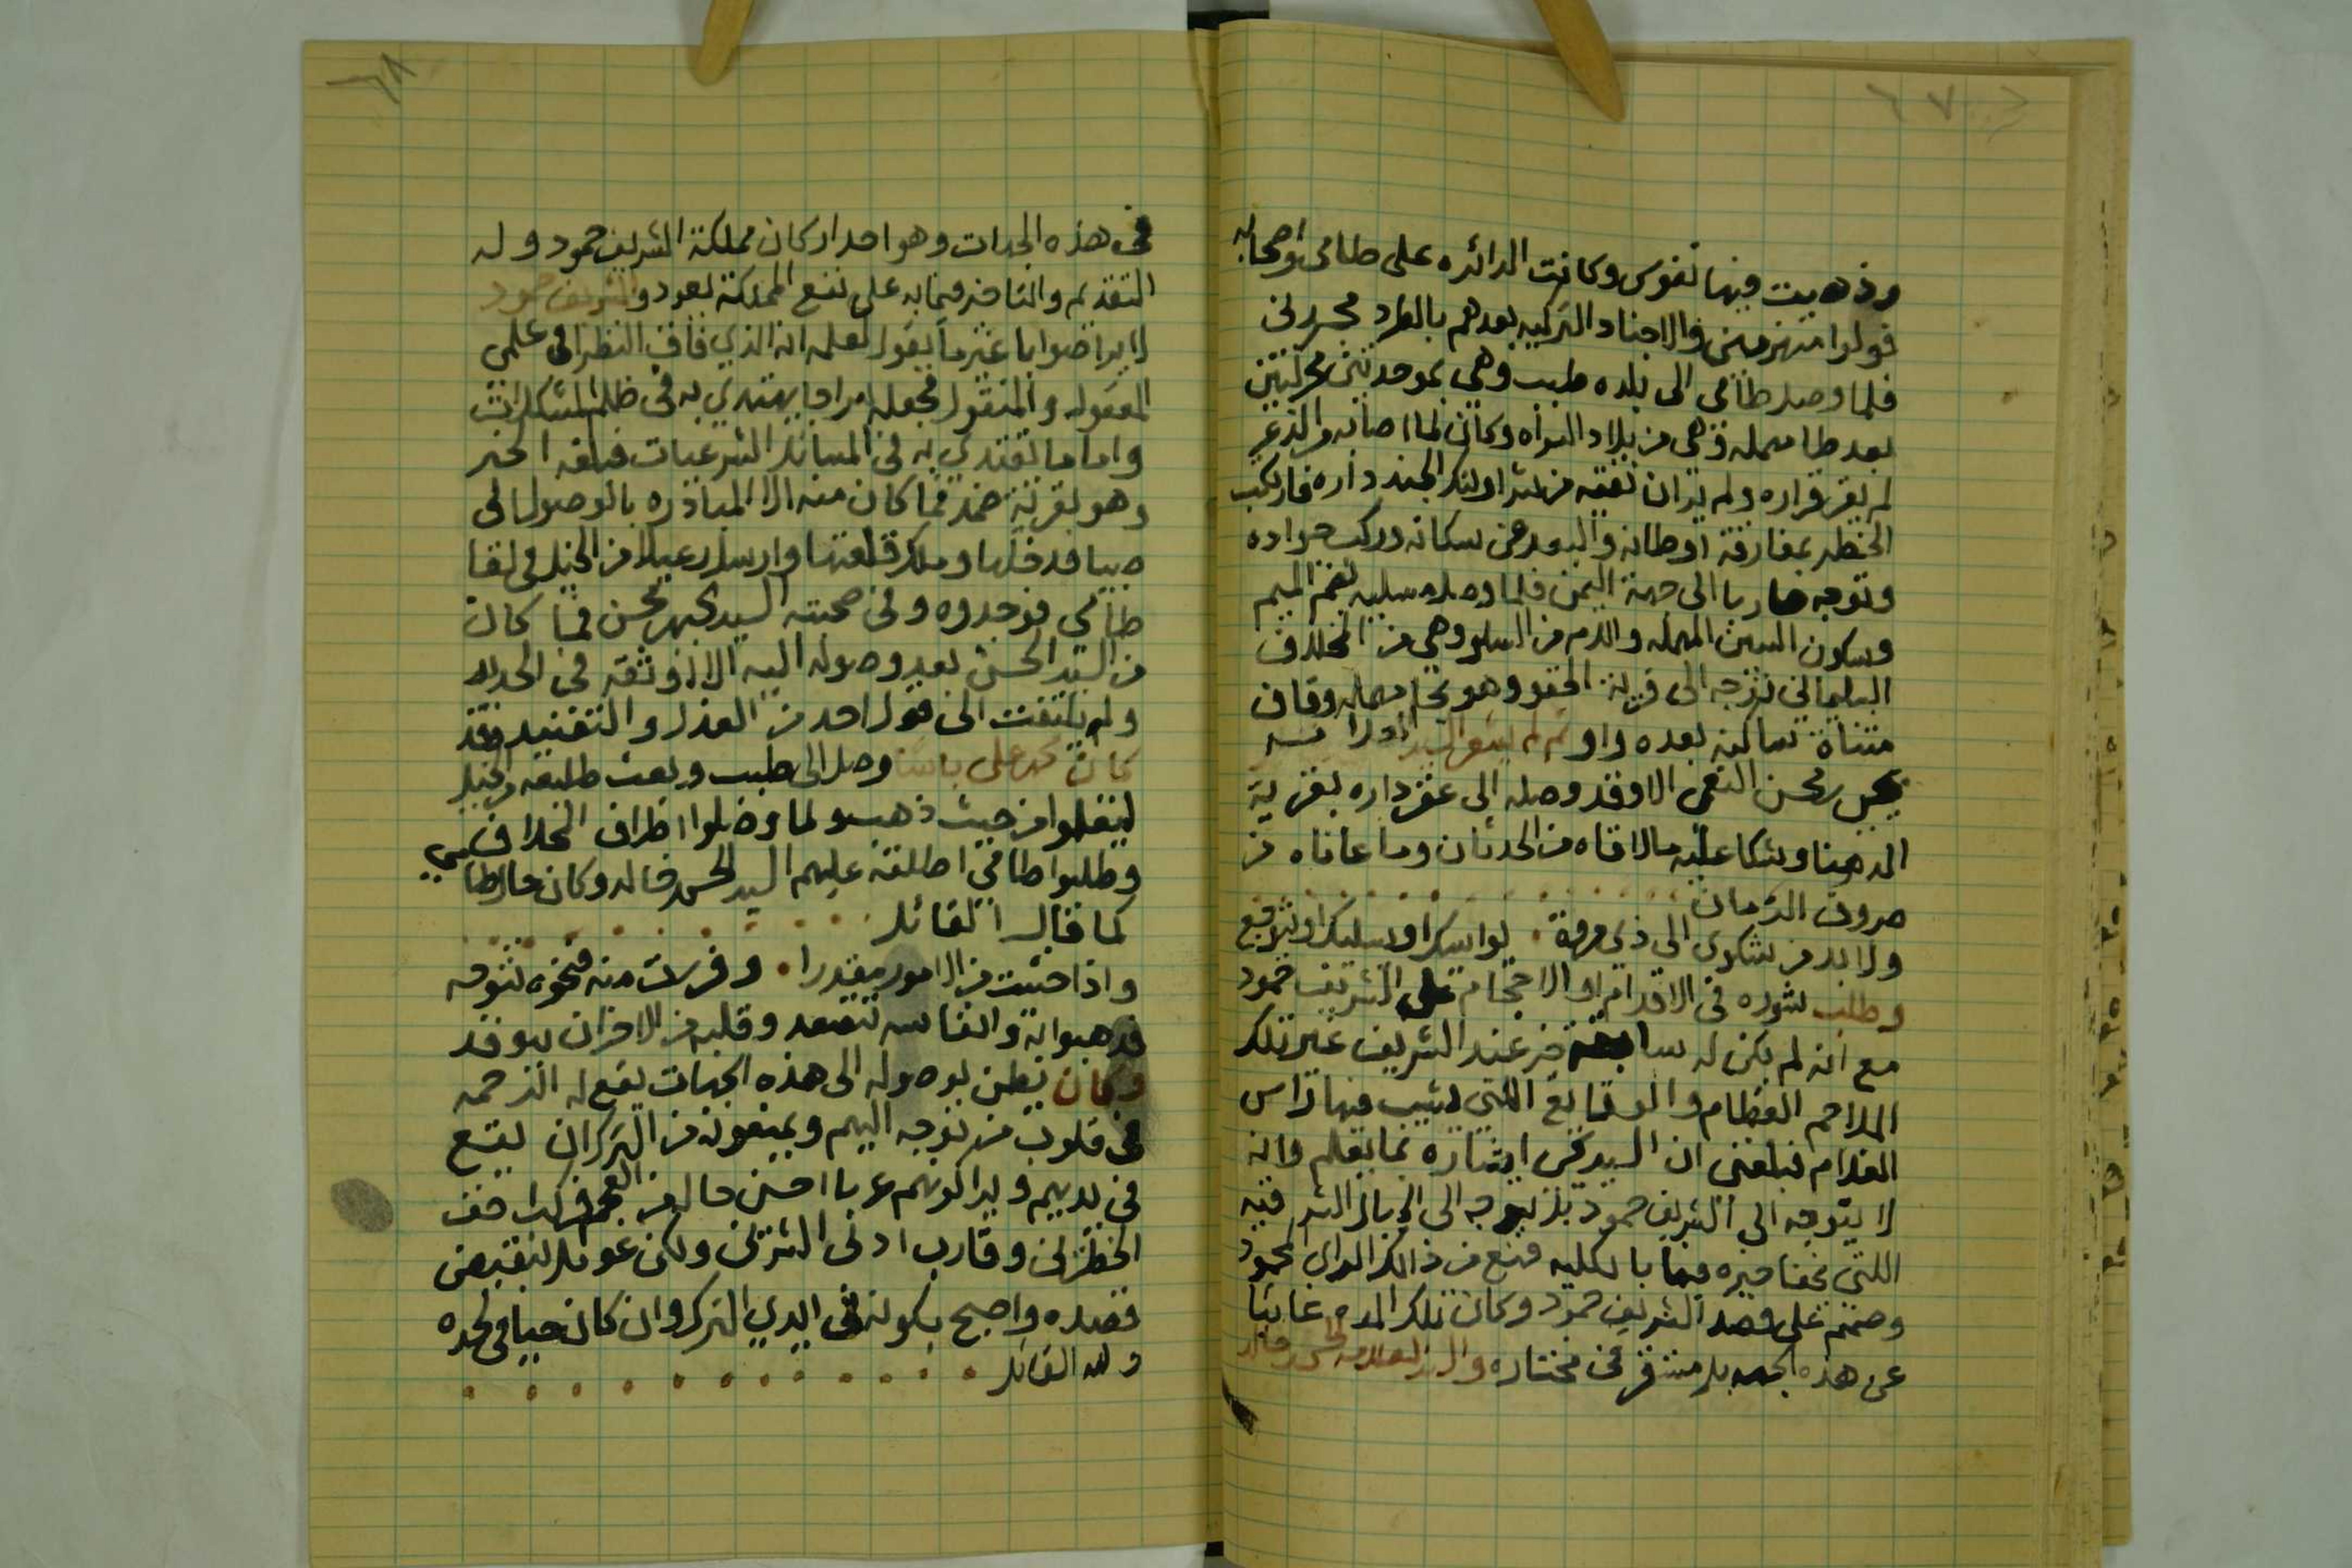 ٦٧
وذهبت فيها نفوس وكانت الدائره على طامي واصحابه
فولوا منهزمين والاجناد التركيه بعدهم بالطرد مجدين
فلما وصل طامي الى بلده طبب وهي بموحدتين محركتين
بعد طا مهمله وهي من بلاد السراه وكان لما اصابه من الذعر
لم يقر قراره ولم يران تقيه من شر اولئك الجند داره فارتكب
الخطر بمفارقة اوطانه والبعد عن سكانه وركب جواده
وتوجه هاربا الى جهة اليمن فلما وصل مسليه بضم الميم
وسكون السين المهمله واللام من السلو وهي من المخلاف
السليماني توجه الى قرية الحقو وهو بحا مهمله وقاف
مثناة ساكنه بعده واو ثم لم يشعر السيد
يحيى بن محسن النعمي الا وقد وصله الى عقر داره بقرية
الدهنا وشكا عليه مالاقاه من الحدثان وما عاناه من
صروف الزمان
ولا بد من شكوى الى ذي مروة . يواسيك او يسليك او يتوجع
وطلب شوره في الاقدام او الاحجام على الشريف حمود
مع انه لم يكن له سابقة من عند الشريف غير تلك
الملاحم العظام والوقايع اللتي يشيب فيها راس
الغلام فبلغني ان السيد يحيى اشاره بما يعلم وانه
لا يتوجه الى الشريف حمود بل يتوجه الى الجبال الشرقيه
اللتي يختا خيره فيها بالكليه فمنع من ذالك الراي المحمود
وصمم على قصد الشريف حمود وكان تلك المده غائبا
عن هذه الجهه بل مستقر في مختاره والسيد العلامه الحسن بن خالد
٦٨
في هذه الجهات وهو احد اركان مملكة الشريف حمود وله
التقديم والتاخير فيما به على نفع المملكة يعود والشريف حمود
لا يراضوابا غير ما يقول لعلمه انه الذي فاق النظرا في علمي
المعقول والمنقول فجعله سراجا يهتدي به في ظلم المشكلات
واماما يقتدي به في المسائل الشرعيات فبلغه الخبر
وهو بقرية ضمد فما كان منه الا المبادره بالوصول الى
صبيا فدخلها وملك قلعتها وارسل رعيلا من الخيل في لقا
طامي فوجدوه وفي صحبته السيد يحيى بن محسن فما كان
من السيد الحسن بعد وصوله اليه الا اوثقه في الحديد
ولم يلتفت الى قول احد من العذل والتفنيد وقد
كان محمد علي باشا وصل الى طبب وبعث طليعه من خيل
ليقفلوا من حيث ذهبو ولما وصلوا اطراف المخلاف
وطلبوا طامي اطلقه عليهم السيد الحسن بن خالد وكان حال طامي
كما قال القائل
واذا خشيت من الامور مقدرا . وفررت منه فنحوه تتوجه
فذهبوا به وانفاسه تتصعد وقلبه من الاحزان يتوقد
وكان يظن بوصوله الى هذه الجهات يقع له الرحمه
في قلوب من توجه اليهم ويمنعونه من التركان يقع
في يديهم ويراكونهم عربا احسن حالا من العجم فركب متن
الخطرين وقارب ادنى الشرين ولكن عومل بنقيض
قصده واصبح بكونه في ايدي الترك وان كان حيا في لحده
ولله القائل